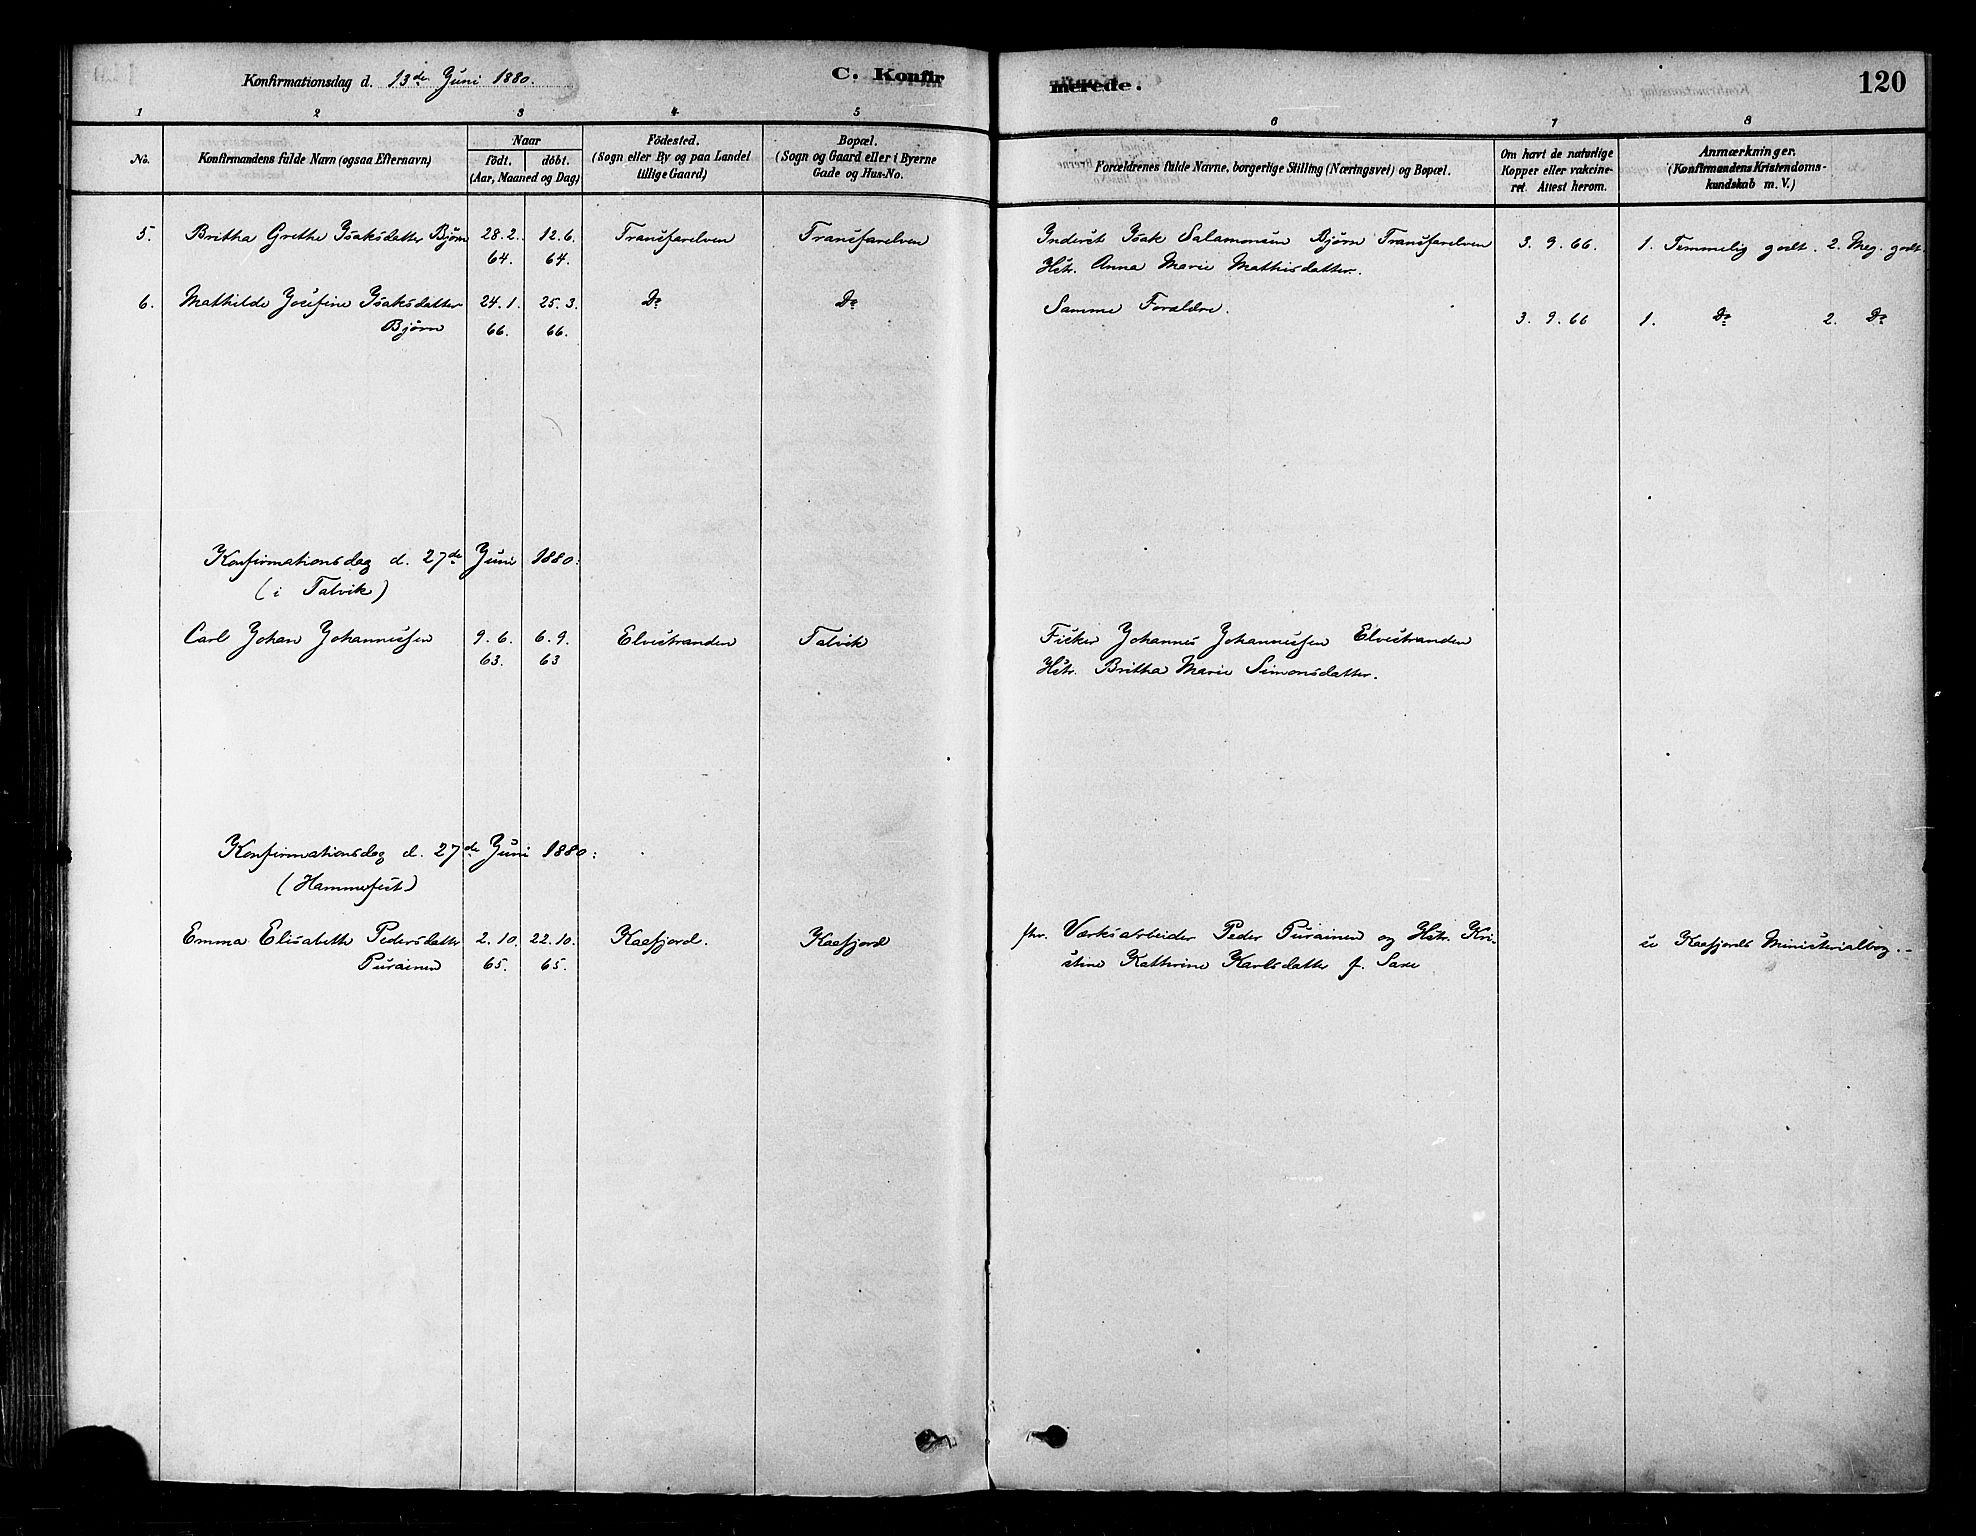 Konfirmationsdag d. 13de Juni 1880. C. Konfirmerede. 120
1 2 3 4 5 6 7 8
No.
Konfirmandens fulde Navn (ogsaa Efternavn)
Naar
født, døbt.
(Aar, Maaned og Dag)
Födested.
(Sogn eller By og paa Landet
tillige Gaard)
Bopæl.
(Sogn og Gaard eller i Byerne
Gade og Hus-No.
Forældrenes fulde Navne, borgerlige Stilling (Næringsvei) og Bopæl.
Om havt de naturlige
Kopper eller vakcine-
ret. Attest herom.
Anmærkninger.
(Konfirmandens Kristendoms-
kundskab m. V.)
5. Britha Grethe Isaksdatter Bjørn 28.2. 12.6. Transfarelven Transfarelven Inderst Isak Salamonsen Bjørn Transfarelven 3. 9. 66. 1. Temmelig godt. 2. Meg. godt.
64. 64. Hstr. Anna Marie Mathisdatter.
6. Mathilde Josefine Isaksdatter 24.1. 25.3. Do Do Samme Forældre.
Bjørn 66. 66. 3. 9. 66 1. Do 2. Do
Konfirmationsdag d. 27de Juni 1880:
(i Talvik)
Carl Johan Johannessen 9.6. 6.9. Elvestranden Talvik Fisker Johannes Johannessen Elvestranden
63. 63 Hstr. Britha Marie Simonsdatter.
Konfirmationsdag d. 27de Juni 1880:
(Hammerfest)
Emma Elisabeth Pedersdatter 2.10. 22.10. Kaafjord. Kaafjord fhv. Værksarbeider Peder Purainen og Hstr. Kri-
Purainen 65. 65. stine Kathrine Karlsdatter f. Sare
se Kaafjords Ministerialbog.